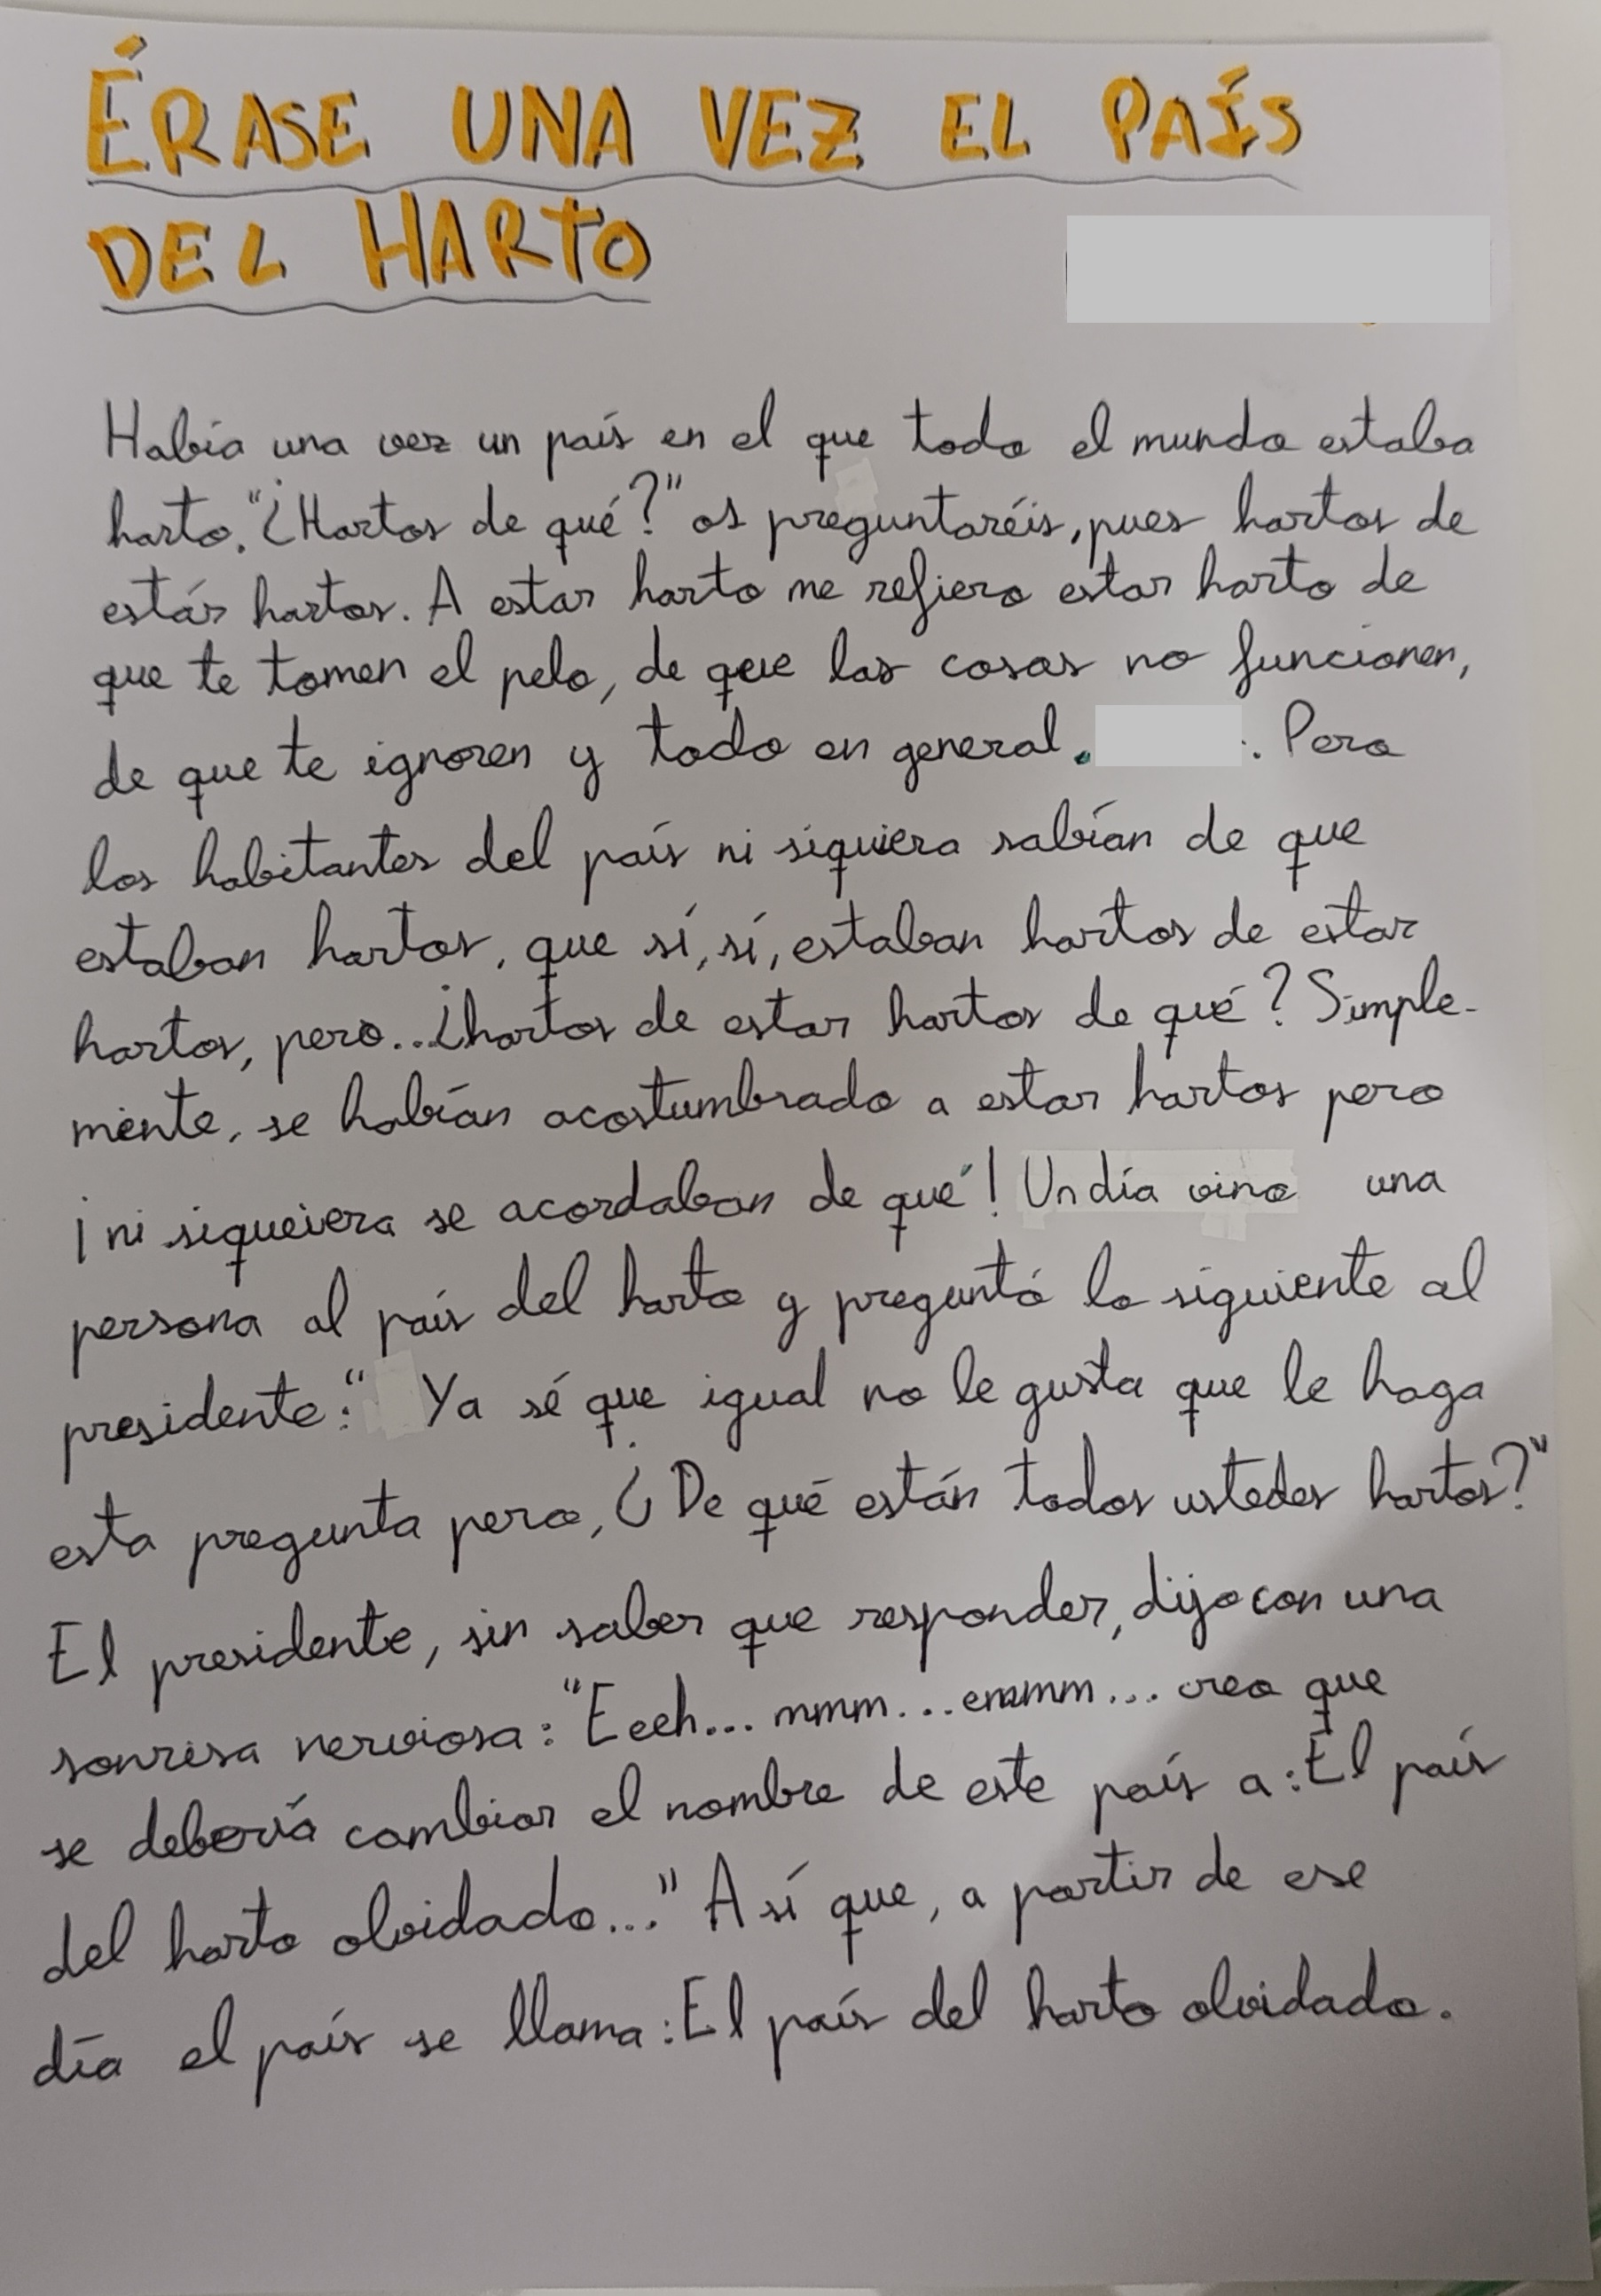 ÉRASE UNA VEZ EL PAÍS
DEL HARTO
Había una vez un país en el que todo el mundo estaba
harto. "¿Hartos de qué?" os preguntaréis, pues hartos de
estár hartos. A estar harto me refiero estar harto de
que te tomen el pelo, de que las cosas no funcionen,
de que te ignoren y todo en general. . Pero
los habitantes del país ni siquiera sabían de que
estaban hartos, que sí, sí, estaban hartos de estar
hartos, pero...¿hartos de estar hartos de qué? Simple-
mente, se habían acostumbrado a estar hartos pero
¡ni siqueiera se acordaban de qué! Un día vino una
persona al país del harto y preguntó lo siguiente al
presidente:" Ya sé que igual no le gusta que le haga
esta pregunta pero, ¿De qué están todos ustedes hartos?"
El presidente, sin saber que responder, dijo con una
sonrisa nerviosa: "Eeeh... mmm... emmm... creo que
se debería cambiar el nombre de este país a: El país
del harto olvidado..." Así que, a partir de ese
día el país se llama: El país del harto olvidado.